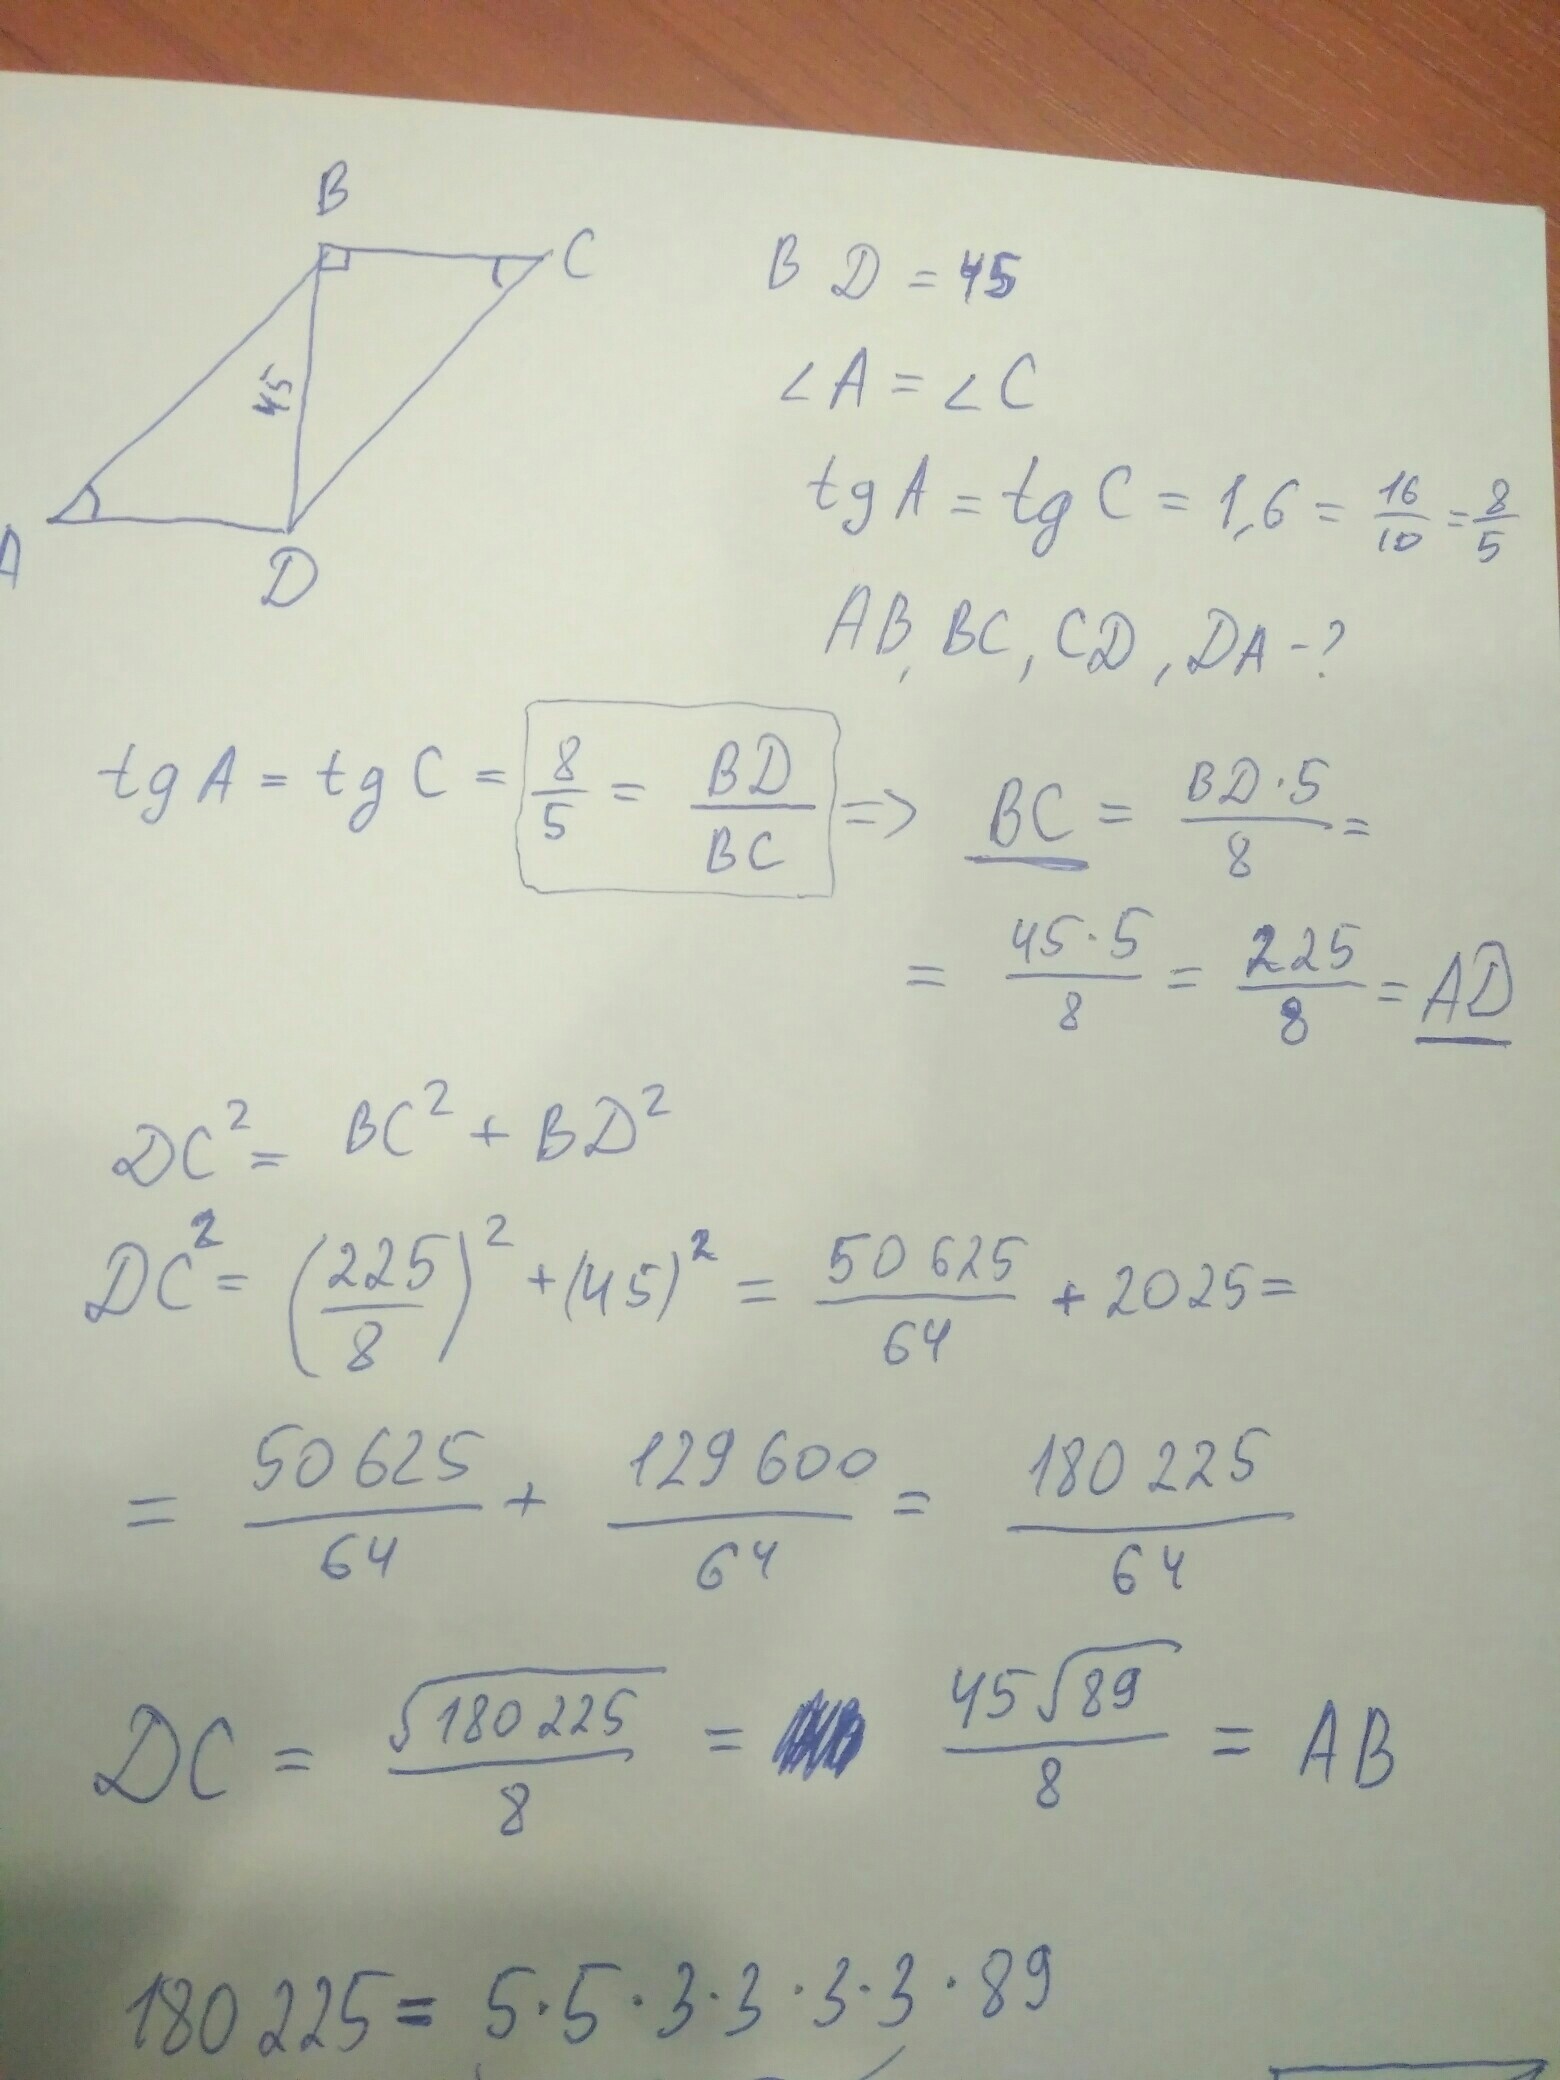 B
C
45
A
D
BD = 45
∠A = ∠C
tg A = tg C = 1,6 = 16/10 = 8/5
AB, BC, CD, DA - ?
tg A = tg C = 8/5 = BD/BC => BC = BD·5/8 =
= 45·5/8 = 225/8 = AD
DC² = BC² + BD²
DC² = (225/8)² + (45)² = 50 625/64 + 2025 =
= 50 625/64 + 129 600/64 = 180 225/64
DC = √180 225/8 = 45√89/8 = AB
180 225 = 5·5·3·3·3·3·89